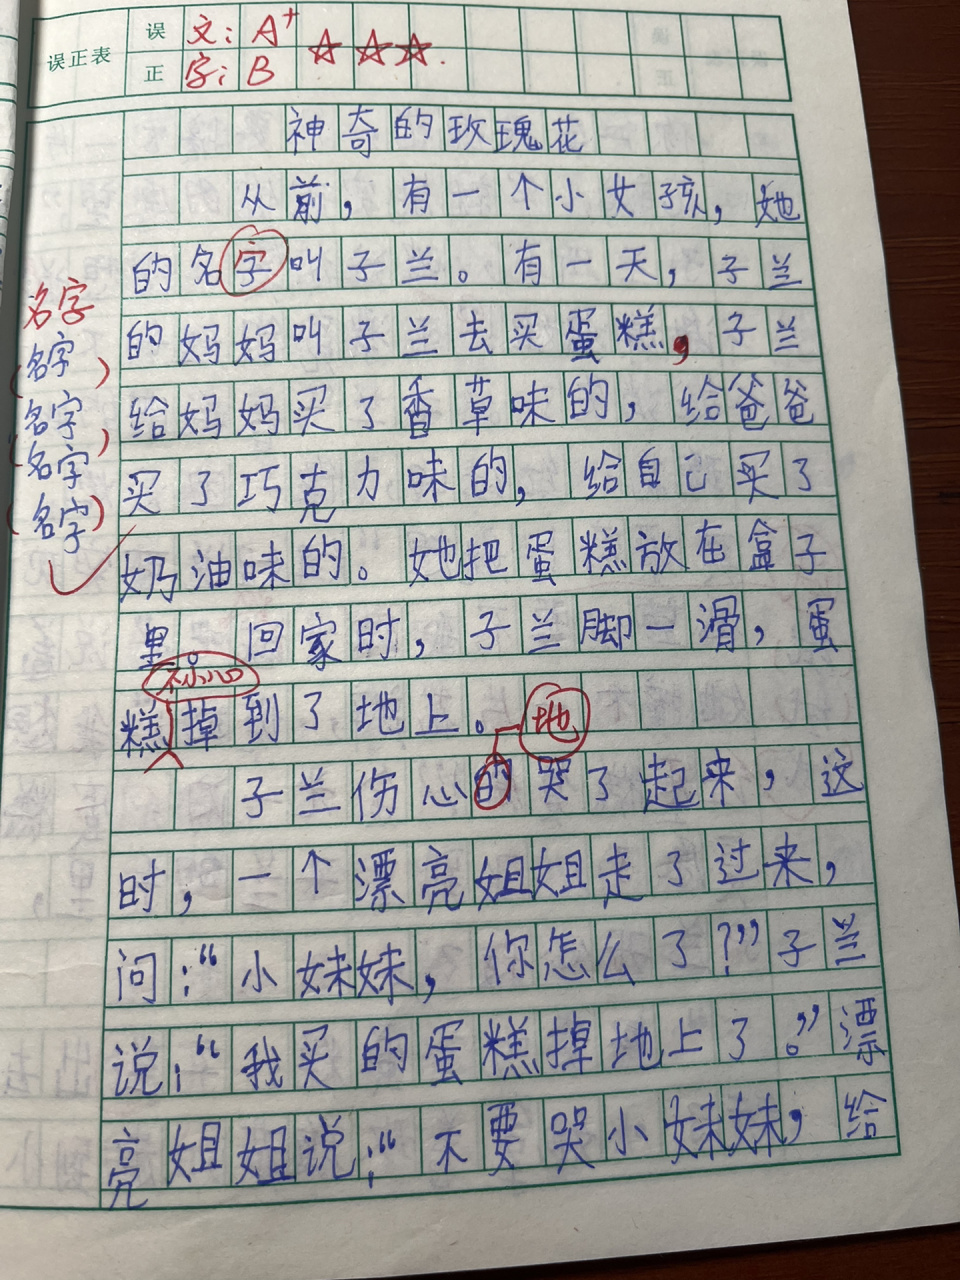 误正表 误 正
文：A+
字：B
神奇的玫瑰花
从前，有一个小女孩，她
的名字叫子兰。有一天，子兰
的妈妈叫子兰去买蛋糕，子兰
给妈妈买了香草味的，给爸爸
买了巧克力味的，给自己买了
奶油味的。她把蛋糕放在盒子
里。回家时，子兰脚一滑，蛋
不小心
糕掉到了地上。
地
子兰伤心的哭了起来，这
时，一个漂亮姐姐走了过来，
问：“小妹妹，你怎么了？”子兰
说：“我买的蛋糕掉地上了。”漂
亮姐姐说：“不要哭小妹妹，给
名字
名字
名字
名字
名字